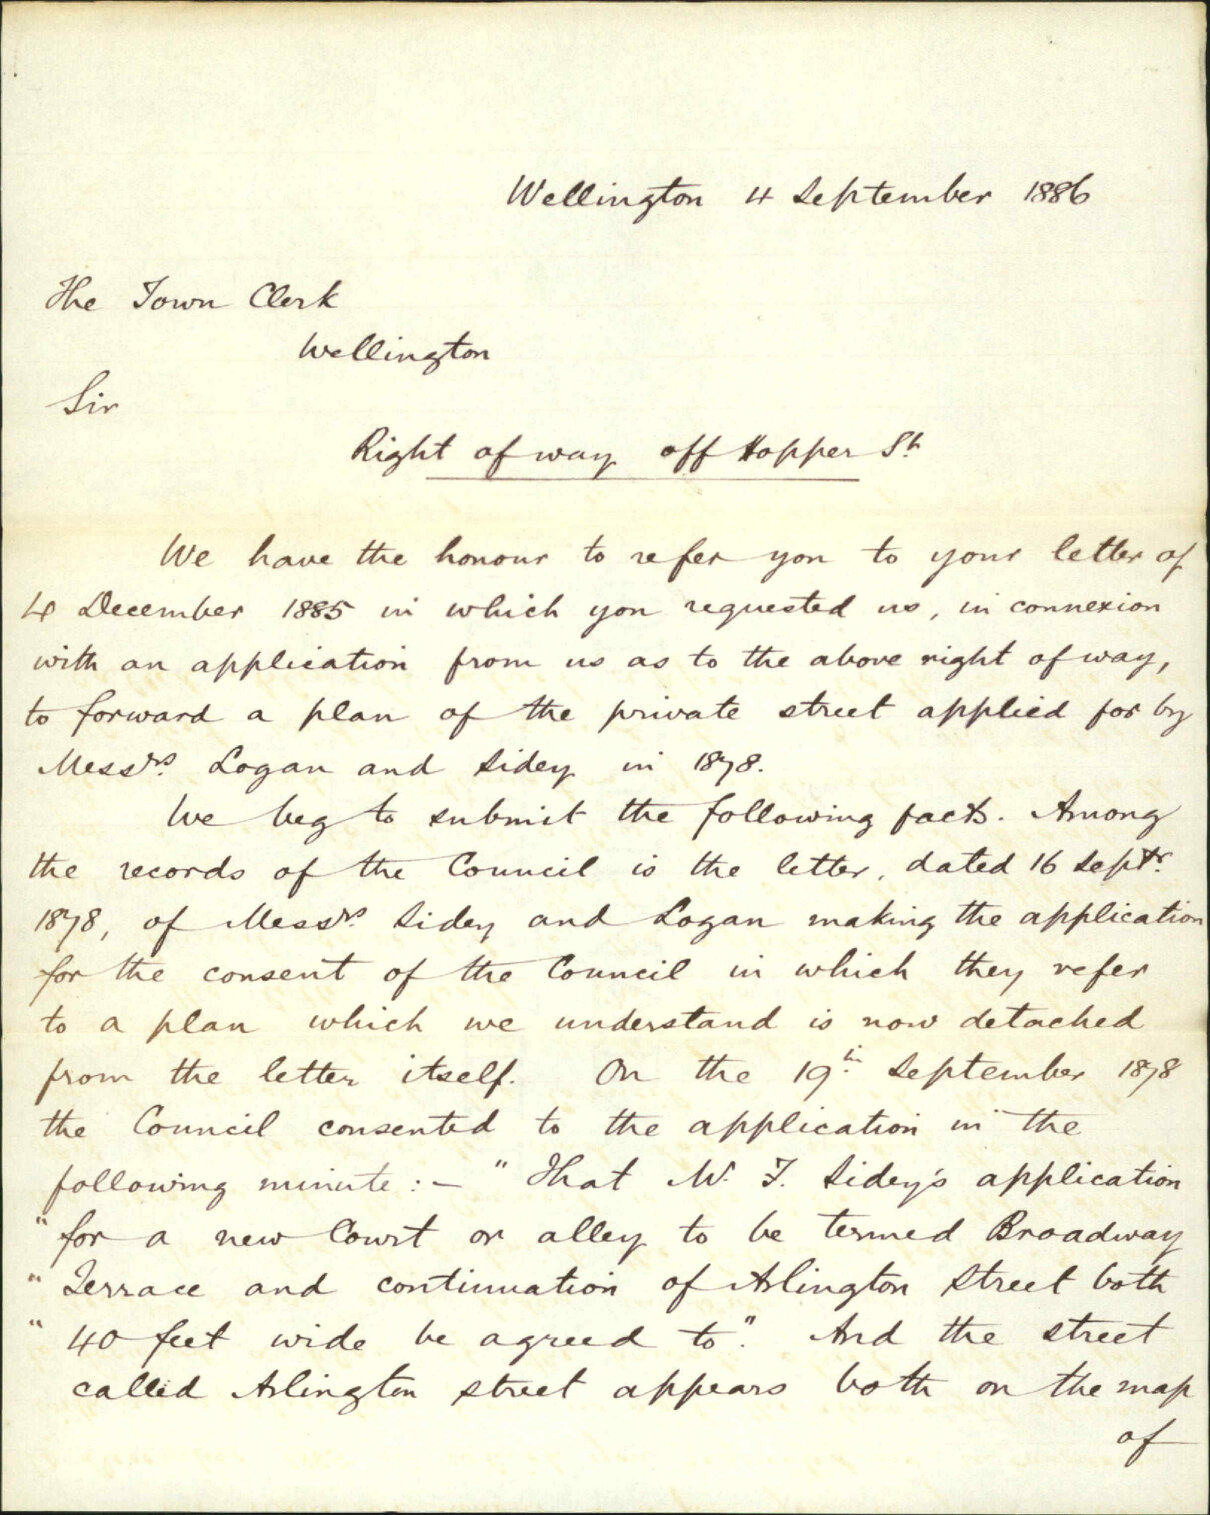 Wellington 4 September 1886
The Town Clerk
Wellington
Sir
Right of way off Hopper St.
We have the honour to refer you to your letter of
4 December 1885 in which you requested us, in connexion
with an application from us as to the above right of way,
to forward a plan of the private street applied for by
Messrs. Logan and Sidey in 1878.
We beg to submit the following facts. Among
the records of the Council is the letter, dated 16 Septr.
1878, of Messrs. Sidey and Logan making the application
for the consent of the Council in which they refer
to a plan which we understand is now detached
from the letter itself. On the 19th. September 1878
the Council consented to the application in the
following minute :— "That W. F. Sidey's application
"for a new Court or alley to be termed Broadway
"Terrace and continuation of Arlington Street both
"40 feet wide be agreed to". And the street
called Arlington street appears both on the map
of